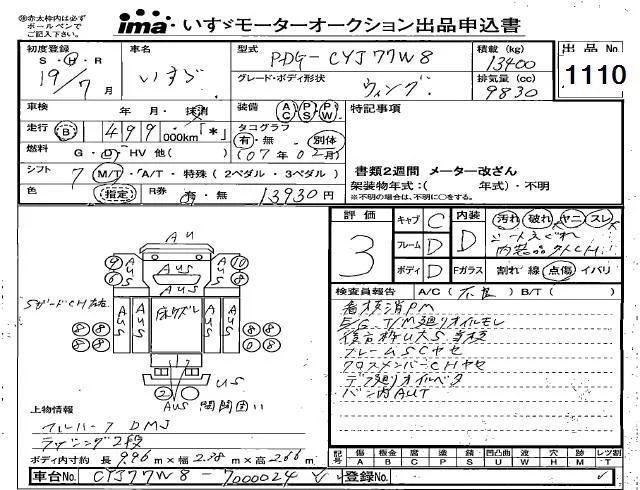 ※赤太枠内は必ず
ボールペンで
ご記入下さい。
ima いすゞモーターオークション出品申込書
初度登録 車名 型式 PDG-CYJ77W8 積載(kg) 13400 出品No. 1110
S・H・R
19/7月 いすゞ グレード・ボディ形状 ウィング 排気量(cc) 9830
車検 年 月・抹消 装備 AC PS PW 特記事項
走行 B 1499 000km「*」 タコグラフ 有・無 別体
燃料 G・D・HV 他( ) (07年02月)
シフト 7 M/T・A/T・特殊(2ペダル・3ペダル) 書類2週間 メーター改ざん
架装物年式:( 年式)・不明
色 指定 R券 有・無 13930円 ※不明の場合は、不明に○をする。
評価 3 キャブ C 内装 D 汚れ 破れ ヤニ スレ
フレーム D
内装品欠CH
ボディ D Fガラス 割れ 線 点傷 イバリ
検査員報告 A/C(不良) B/T( )
看板消PM
E/G、T/M廻りオイルモレ
フレームSCヤセ
クロスメンバーCHヤセ
デフ廻りオイルベタ
バン内AUT
AU
AUS
9 6 AUS AUS 10 0
SガードCH
AUS AUS 床キズル AUS AUS
8 8 8 8
8 8 0 8
US
2
AUS 開閉
上物情報
フルハーフ DMJ
ラッシング2段
ボディ内寸約 長9.96m×幅2.38m×高2.66m
記号 傷 板金 腐 塗 錆 凹凸曲 波 穴 跡 レツ割
A B C P S U W H M T
車台No. CYJ77W8-7000024 登録No.